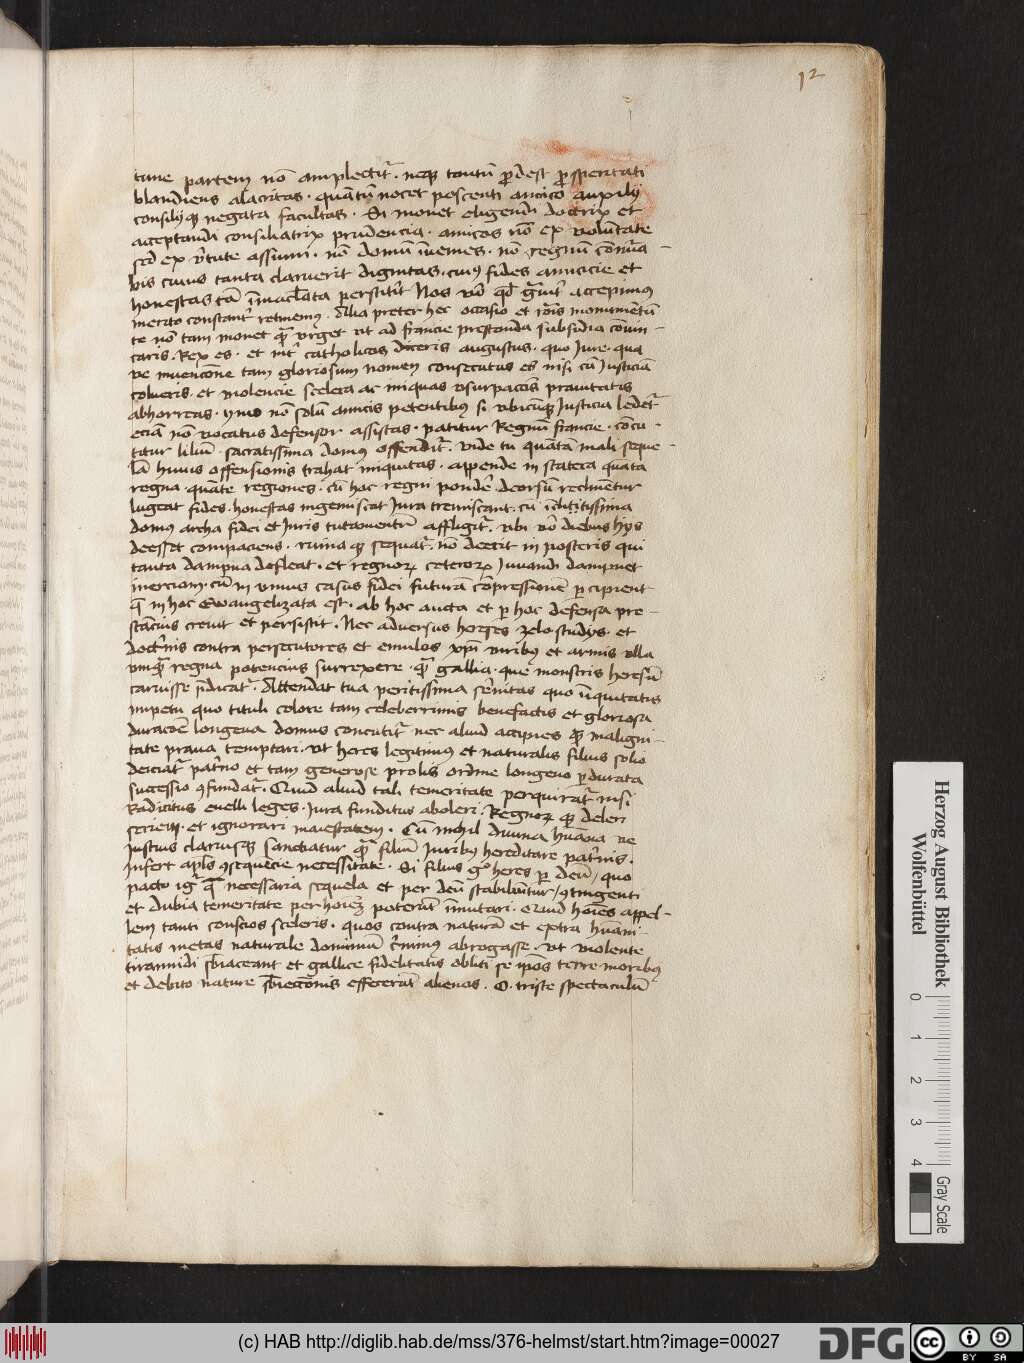 12
tune partem nō amplectit᷑ . neqꝫ tantū ꝓdest ꝓsperitati
blandiens alacritas . quātū nocet poscenti amico auxilij
consilijqꝫ negata facultas . Si monet eligendi doctrix et
acceptandi consiliatrix prudencia . amicos nō ex volūtate
sed ex v̓tute assumi . nō domū īuenies . nō regnū cōmūa
bis cuius tanta claruerit dignitas . cuiꝰ fides amicicie et
honestas tā īmaculata perstitit Nos
merito constant᷑ retinemꝰ . Alia preter hec occasio et monumētū
te nō tam monet quā vrget vt ad francie prestanda subsidia cōuīn
caris . Rex es . et int᷑ catholicos diceris augustus . quo Jure . qua
ve inuencōne tam gloriosum nomen consecutus es nisi cū Justiciā
colueris . et violencie scelera ac iniquas vsurpacōis prauitatis
abhorreas . ymo nō solū amicis petentibꝰ si vbicūqꝫ Justicia ledet᷑
eciā nō vocatus defensor assistas . patitur Regnū francie . cōcu
titur liliū . sacratissima domus offendit᷑ . vide tu quātā mali seque
lā huius offensionis trahat iniquitas . appende in statera quāta
regna . quāte regiones . cū hoc regni pondē deorsū reclinētur
lugeat fides . honestas ingemiscat Jura tremiscant . cū
domus archa fidei et Juris tutamentū affligit᷑ . vbi v̄o diebus hijs
deesset compaciens . ruina qꝫ sequat᷑ . nō deerit in posteris qui
tanta dampna defleat . et regnoꝝ ceteroꝝ Juuandi dampnet
inerciam . cū in vnius casus fidei futurā cōpressionē ꝑcipient
q̄ in hoc Ewangelizata est . ab hoc aucta et ꝑ hoc defensa pre
stācius creuit et persistit . Nec aduersus hereses zelo studijs . et
doct᷑nis contra persecutores et emulos xp̄i viribus et armis vlla
vmqꝫ regna potencius surrexere . quā gallia . que monstris heresū
caruisse p̄dicat᷑ . Attendat tua peritissima sērnitas quo īiquitatis
impetu quo tituli colore tam celeberrimis benefactis et gloriosa
duracōe longeua domus concutit᷑ nec aliud accipies quā maligni
tate praua temptari . vt heres legitimus et naturalis filius solio
deiciat᷑ pat᷑no et tam generose prolis ordine longeuo ꝑdurata
successio ꝯfundat᷑ . Quid aliud tali temeritate perquirāt᷑ nisi
Radicitus euelli leges . Jura funditus aboleri . Regnoꝝ qꝫ deleri
seriem . et ignorari maiestatem . Cū nichil diuina hūana ve
Justius clariusqꝫ sanctiatur quā filiū Juribꝰ hereditare pat᷑nis .
Infert ap̄ls ꝯsequēcie necessitate . Si filius g° heres ꝑ deū / quo
pacto igr̄ q̄ necessaria sequela et per deū stabiliūtur / ꝯtingenti
et dubia temeritate per hoīeꝫ poterūt īmutari . Quid hoīes appel
lem tanti conscios sceleris . quos contra naturā et extra hūani
tatis metas naturale dominiū abrogasse . vt violente
tirannidi sb̄iaceant et gallice fidelitatis obliti se ip̄os terre moribꝰ
et debito nature sb̄iectōnis effecerūt alienos . O . triste spectaculū
Herzog August Bibliothek
Wolfenbüttel
0 1 2 3 4
Gray Scale
(c) HAB http://diglib.hab.de/mss/376-helmst/start.htm?image=00027
DFG
cc BY SA